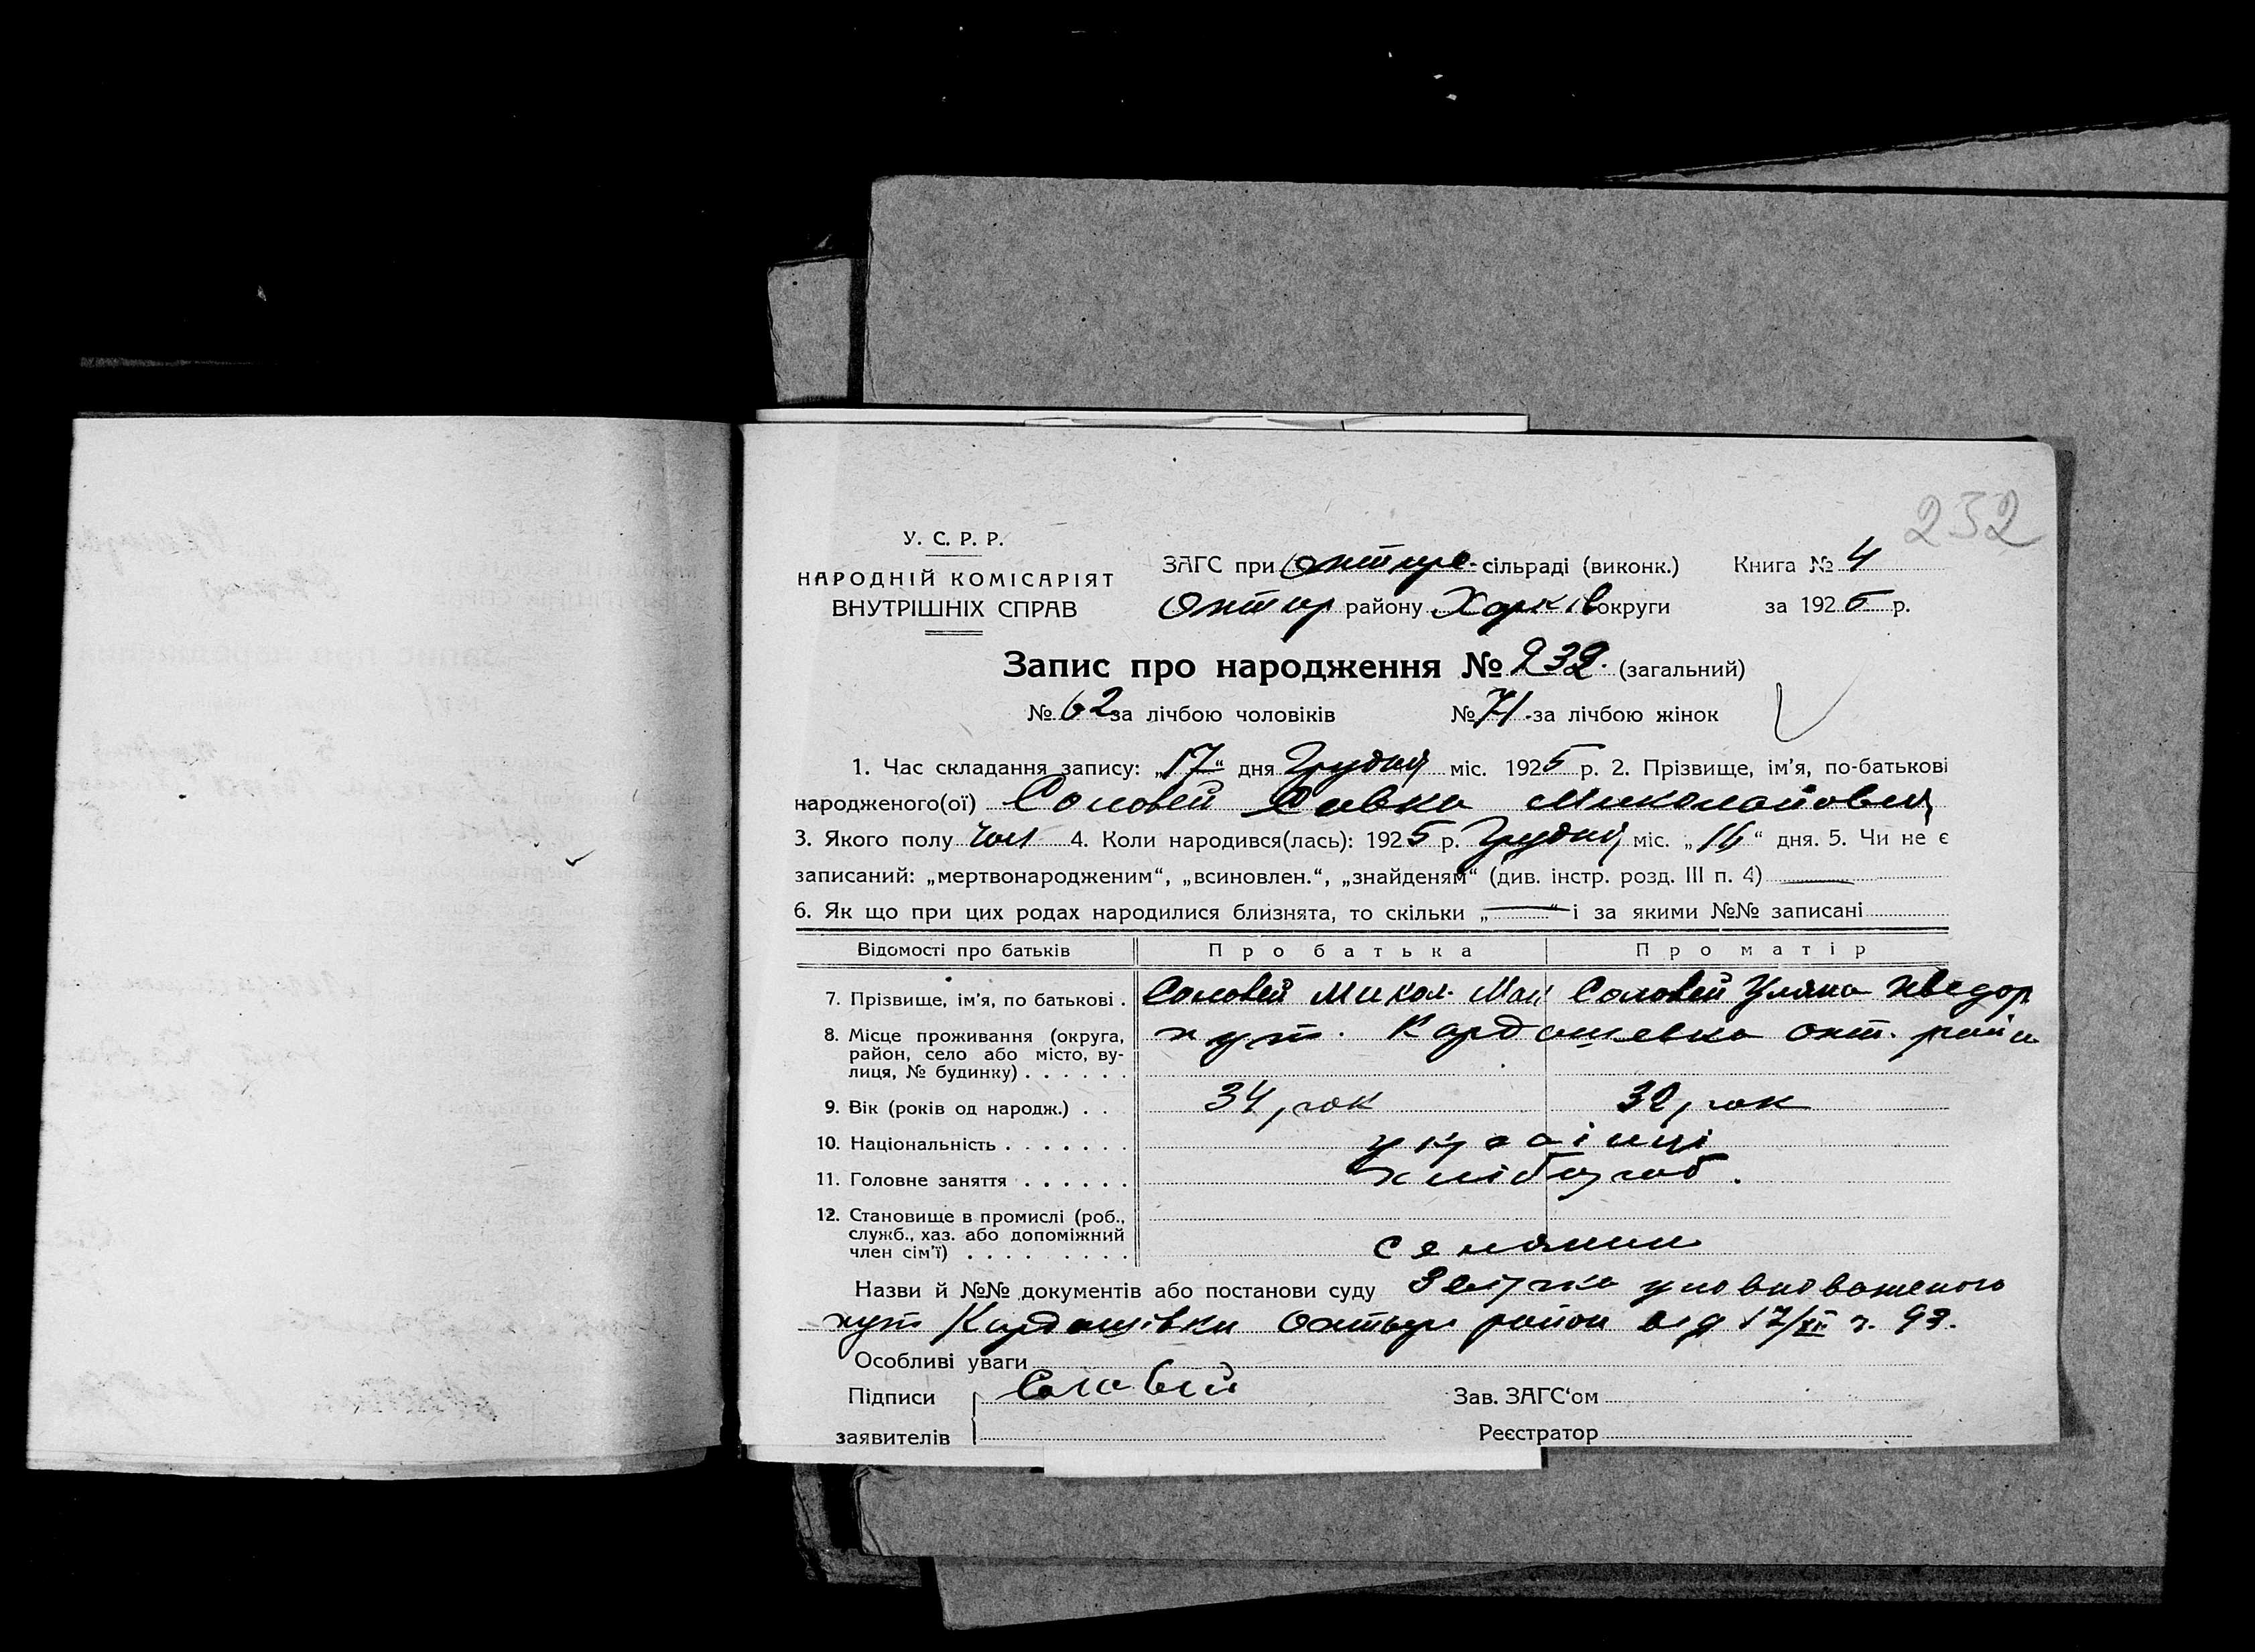 232
У. С. Р. Р.
НАРОДНІЙ КОМІСАРІЯТ
ВНУТРІШНІХ СПРАВ
ЗАГС при сільраді (виконк.) Книга № 4
району Харків округи за 1925 р.
Запис про народження № 232. (загальний)
№ 62 за лічбою чоловіків № 71 за лічбою жінок
1. Час складання запису: „17“ дня Грудня міс. 1925 р. 2. Прізвище, ім’я, по-батькові
народженого(ої) Соловей Савка Миколайович
3. Якого полу чол 4. Коли народився(лась): 1925 р. Грудня міс. „16“ дня. 5. Чи не є
записаний: „мертвонародженим“, „всиновлен.“, „знайденям“ (див. інстр. розд. III п. 4) —
6. Як що при цих родах народилися близнята, то скільки „—“ і за якими №№ записані
Відомості про батьків Про батька Про матір
7. Прізвище, ім’я, по батькові . Соловей Микол. Соловей Уляна Хведор
8. Місце проживання (округа, район, село або місто, вулиця, № будинку) . . . . . . хут. Кардашевка охт. район
9. Вік (років од народж.) . . 34 рок 32 рок
10. Національність . . . . . . . українці
11. Головне заняття . . . . . . хлібороб.
12. Становище в промислі (роб.,
служб., хаз. або допоміжний
член сім’ї) . . . . . . . . . селянин
Назви й №№ документів або постанови суду уповноваженого
хут Кардашівки район від 17/XII ч. 93.
Особливі уваги
Підписи Соловей Зав. ЗАГС‘ом
заявителів Реєстратор